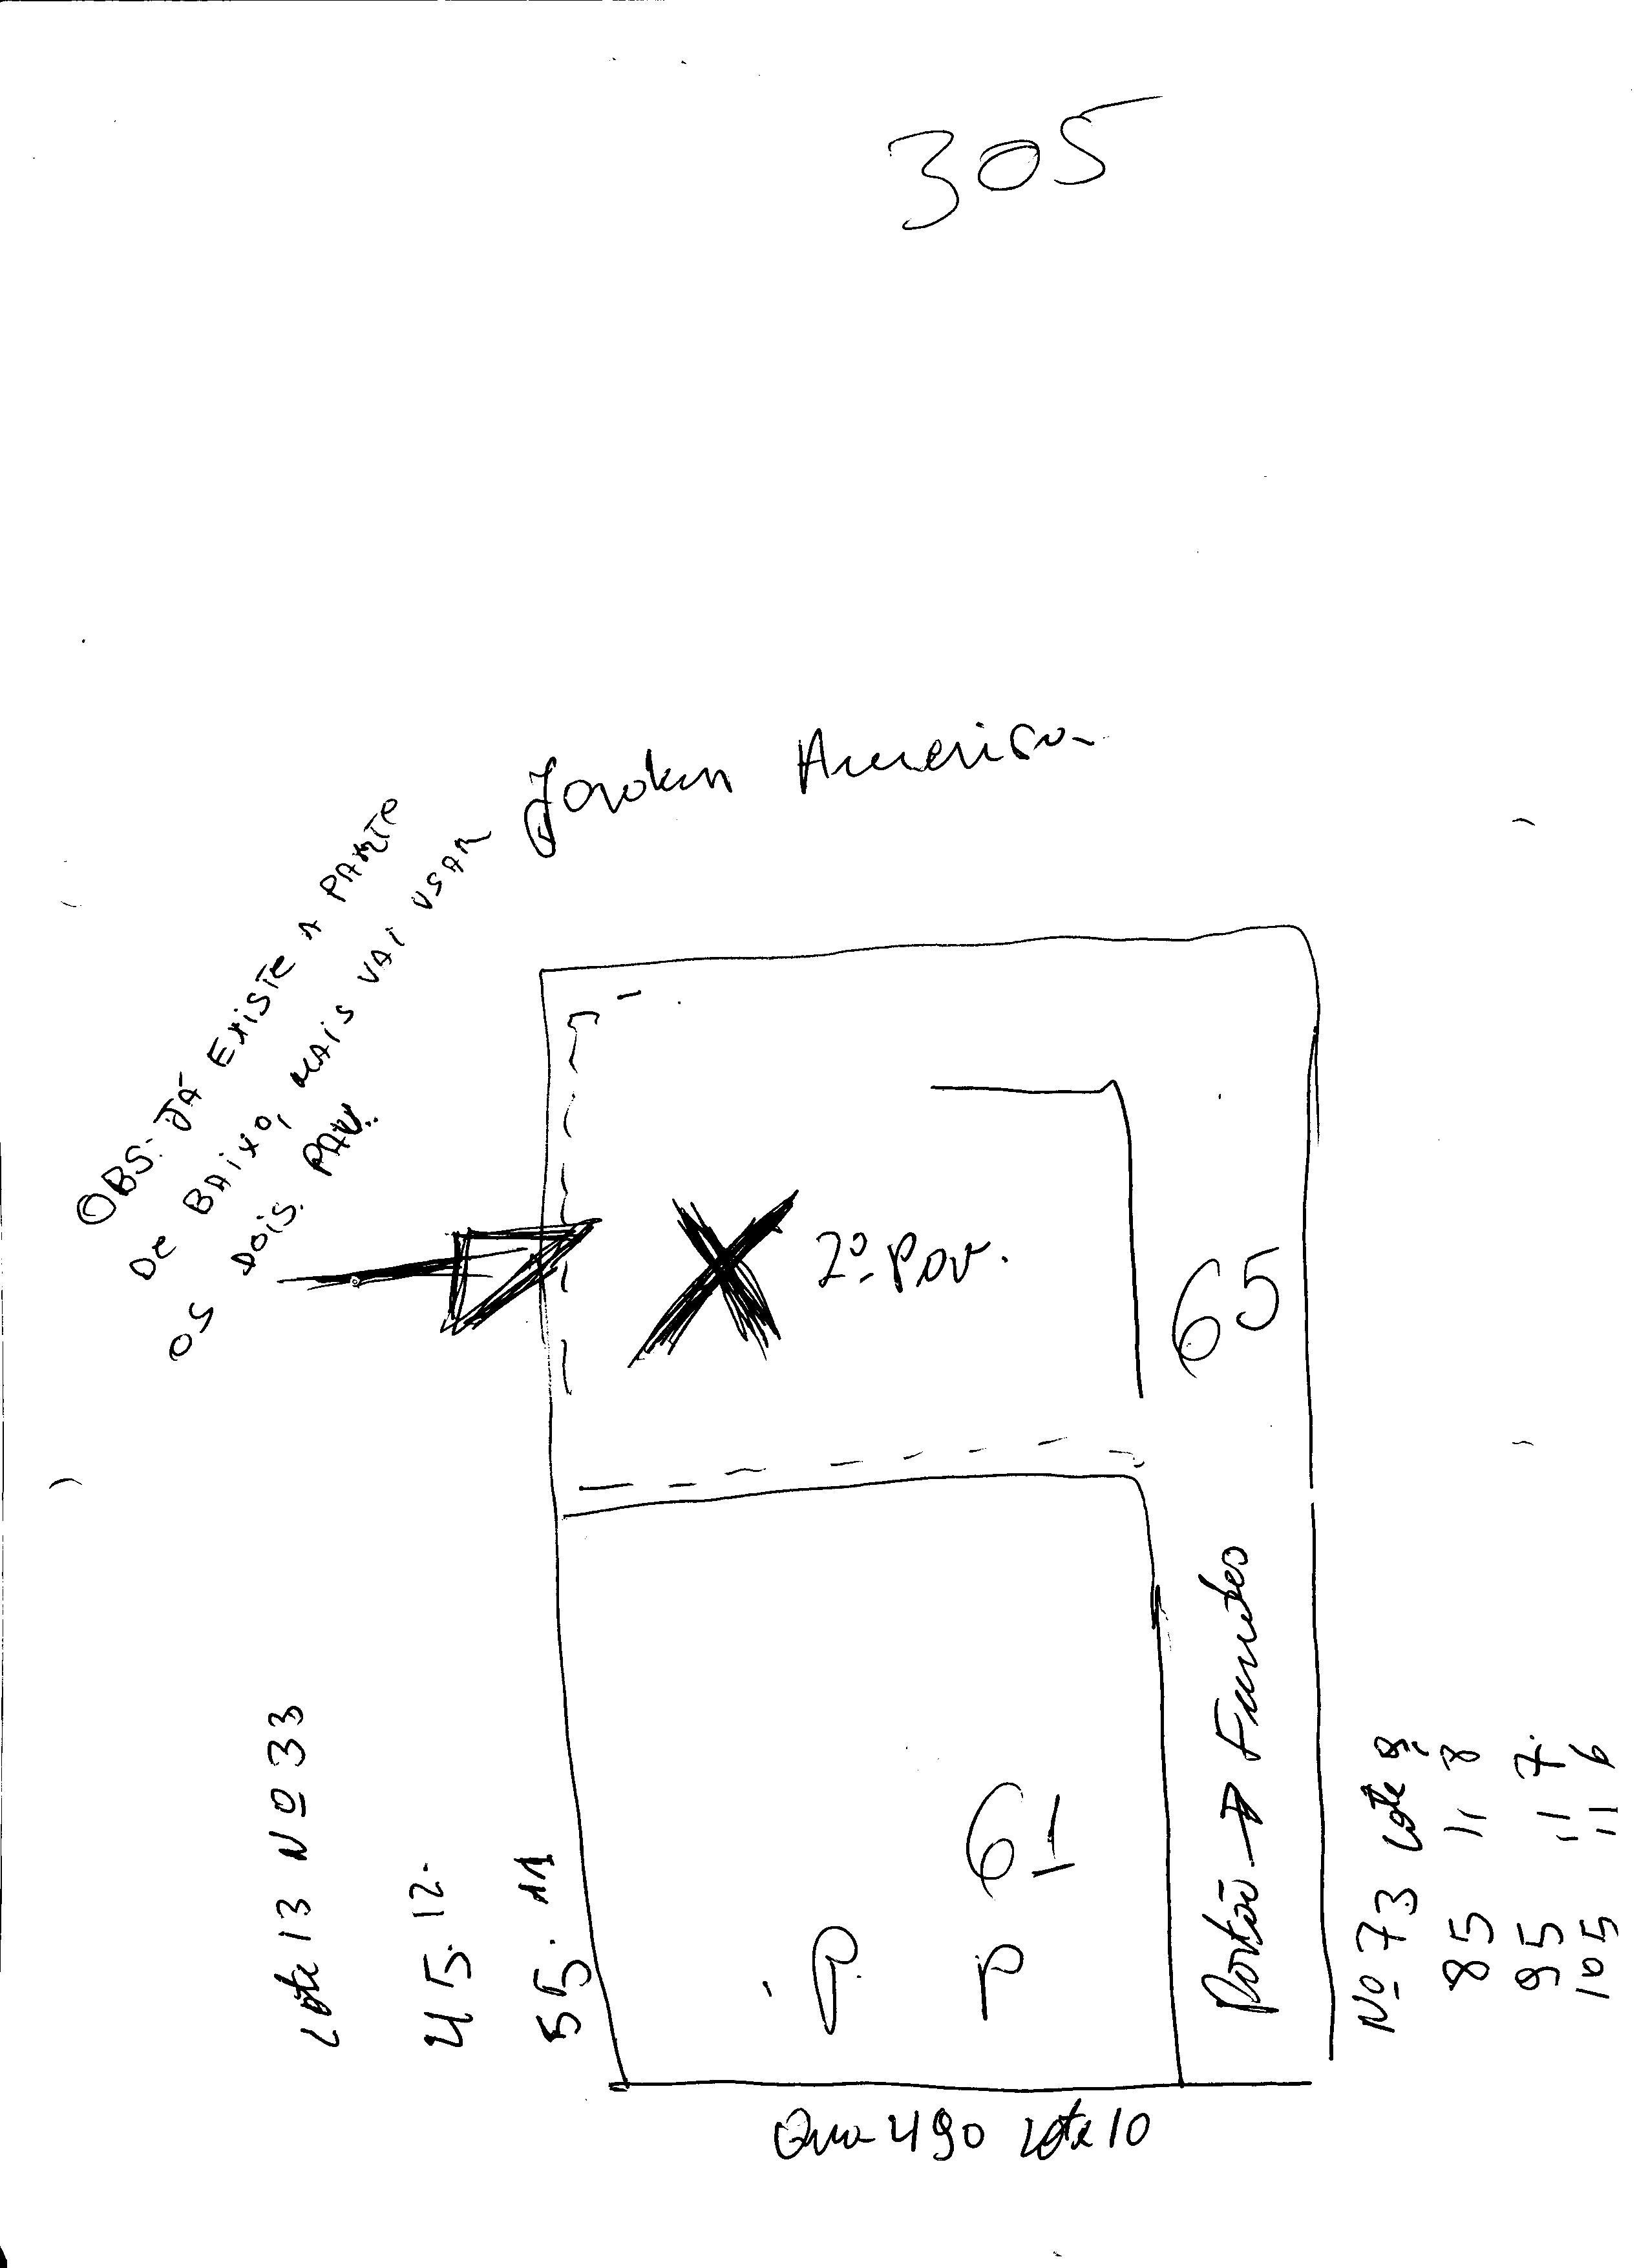 305
Jardim America
OBS: JÁ EXISTE A PARTE
DE BAIXO, MAIS VAI USAR
OS DOIS PAV.
2º Pav.
65
Portão → Fundos
61
Lote 13 Nº 33
45. 12.
55. 11
Nº 73 Lote 9
85 11 8
95 11 7
105 11 6
490 Lote 10